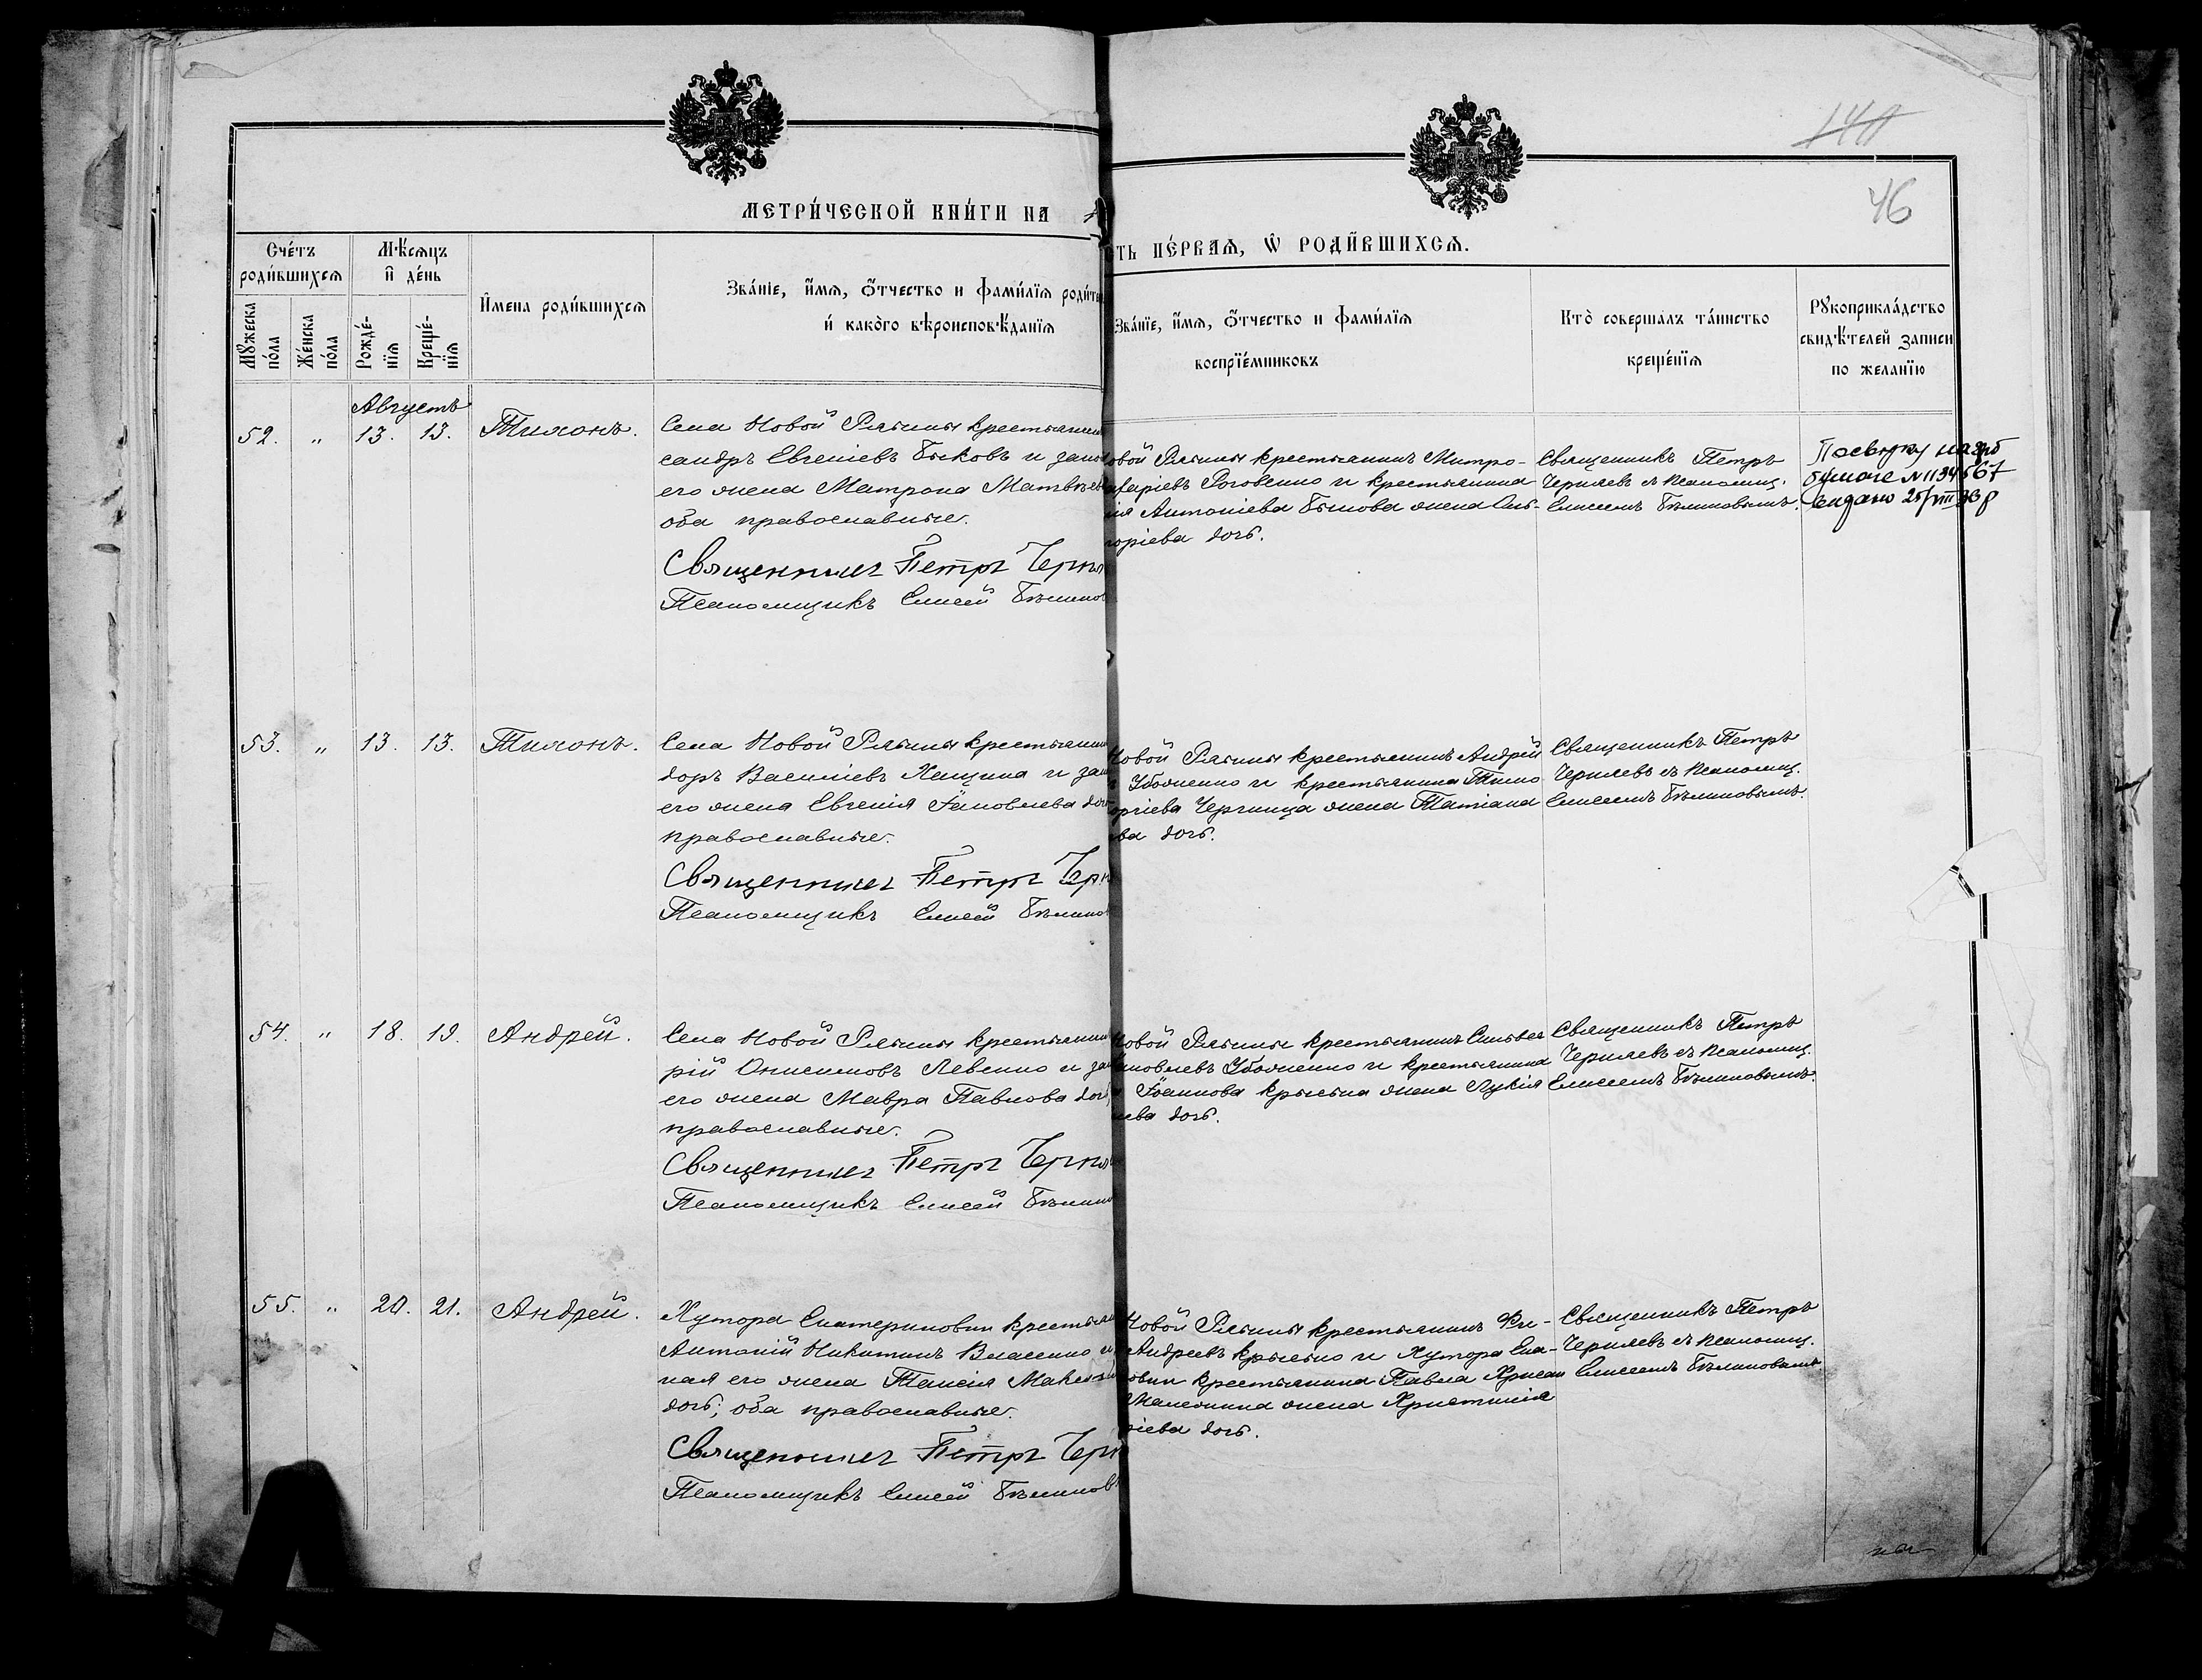 140
46
МЕТРИЧЕСКОЙ КНИГИ НА
ТЬ ПЕРВАЯ, Ѡ РОДИВШИХСЯ.
Счетъ родившихся
Мѣсяцъ и день
Мужеска пола
Женска пола
Рожденія
Крещенія
Имена родившихся
Званіе, имя, отчество и фамилія родите
и какого вѣроисповѣданія
Званіе, имя, отчество и фамилія
воспріемниковъ
Кто совершалъ таинство
крещенія
Рукоприкладство
свидѣтелей записи
по желанію
Августъ
52. " 13. 13. Тихонъ.
Села Новой Рябины крестьянин
сандръ Евгеніевъ Быковъ и зако
его жена Матрона Матвѣев
оба православные.
Священникъ Петръ Черня
Псаломщикъ Елисей Бѣлинов
овой Рябины крестьянинъ Митро-
каріевъ Роговенко и крестьянина
Антоніева Быкова жена
горіева дочь.
Священникъ Петръ
Черняевъ съ псаломщ.
Елисеемъ Бѣлиновымъ.
бумаге №1134567
Выдано 25/VIII
53. " 13. 13. Тихонъ.
Села Новой Рябины крестьянин
доръ Василіевъ Хащина и зак
его жена Евгенія Іаковлева доч
православные.
Священникъ Петръ Черн
Псаломщикъ Елисей Бѣлино
Новой Рябины крестьянинъ Андрей
Убоженко и крестьянина Тимо
оргіева жена Татіана
ва дочь.
Священникъ Петръ
Черняевъ съ псаломщ.
Елисеемъ Бѣлиновымъ.
54. " 18. 19. Андрей.
Села Новой Рябины крестьянин
рій Онисимовъ Левенко и зак
его жена Мавра Павлова доч
православные.
Священникъ Петръ Черня
Псаломщикъ Елисей Бѣлин
Новой Рябины крестьянинъ Сильвес
аковлевъ Убоженко и крестьянина
Іоаннова жена Лукія
ева дочь.
Священникъ Петръ
Черняевъ съ псаломщ.
Елисеемъ Бѣлиновымъ.
55. " 20. 21. Андрей.
Хутора Екатериновки крестьян
Антоній Никитинъ Власенко и
ная его жена Таисія Макси
дочь; оба православные.
Священникъ Петръ Черн
Псаломщикъ Елисей Бѣлинов
Новой Рябины крестьянинъ Фи-
Андреевъ и Хутора Ека-
овки крестьянина Павла Хрисан
жена Христинія
ріева дочь.
Священникъ Петръ
Черняевъ съ псаломщ.
Елисеемъ Бѣлиновымъ